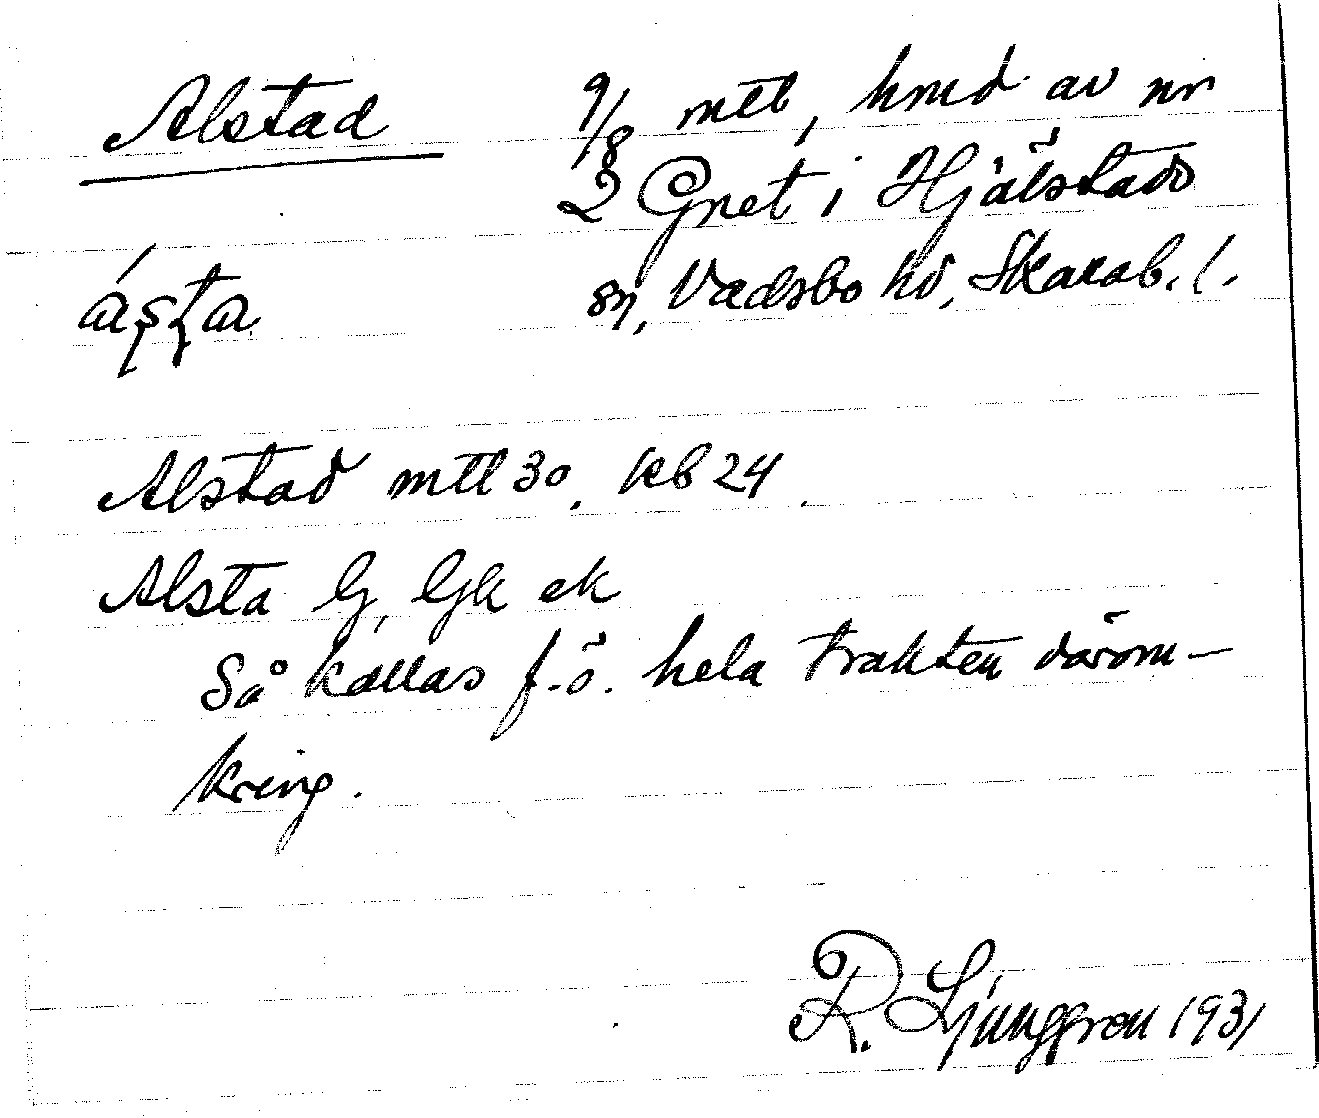 Alstad 9/8 mtl, hmd av nr
2 Gret i Hjälstads
sn, Vadsbo hd, Skarab. l.
ásta
Alstad mtl 30. kb 24.
Alsta G, Gk ek
Så kallas f.ö. hela trakten därom-
kring.
R. Ljunggren 1931